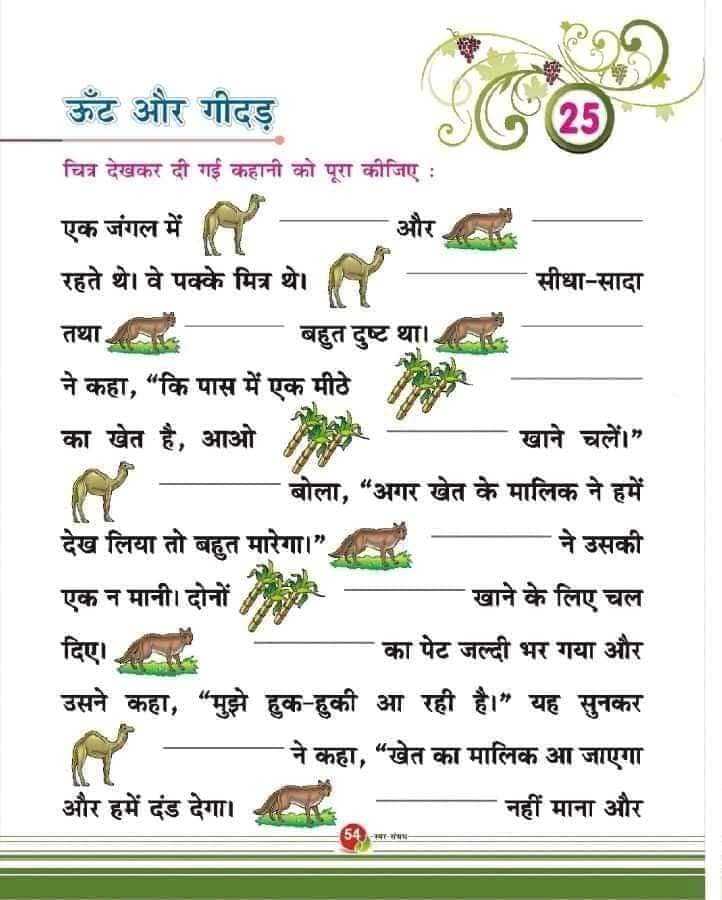 ऊँट और गीदड़
25
चित्र देखकर दी गई कहानी को पूरा कीजिए :
एक जंगल में ________ और ________
रहते थे। वे पक्के मित्र थे। ________ सीधा-सादा
तथा ________ बहुत दुष्ट था। ________
ने कहा, “कि पास में एक मीठे ________
का खेत है, आओ ________ खाने चलें।”
________ बोला, “अगर खेत के मालिक ने हमें
देख लिया तो बहुत मारेगा।” ________ ने उसकी
एक न मानी। दोनों ________ खाने के लिए चल
दिए। ________ का पेट जल्दी भर गया और
उसने कहा, “मुझे हुक-हुकी आ रही है।” यह सुनकर
________ ने कहा, “खेत का मालिक आ जाएगा
और हमें दंड देगा। ________ नहीं माना और
54